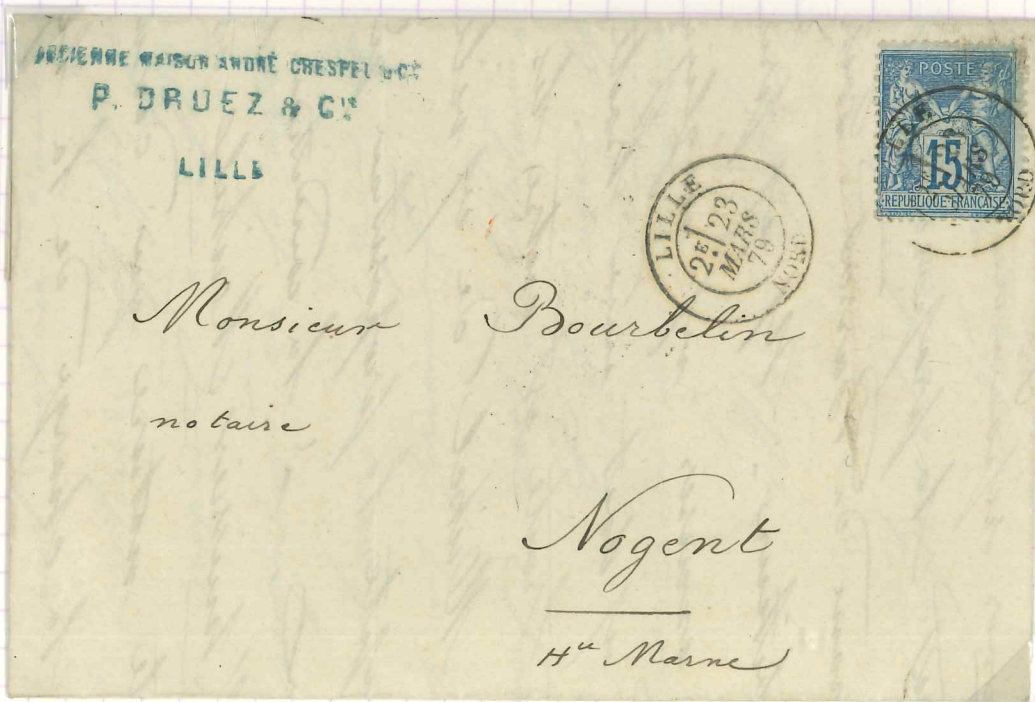 ANCIENNE MAISON ANDRÉ CRESPEL & Cie
P. DRUEZ & Cie
LILLE
POSTE
15
RÉPUBLIQUE FRANÇAISE
LILLE
NORD
LILLE
2E
23
MARS
79
NORD
Monsieur Bourbelin
notaire
Nogent
Hte Marne